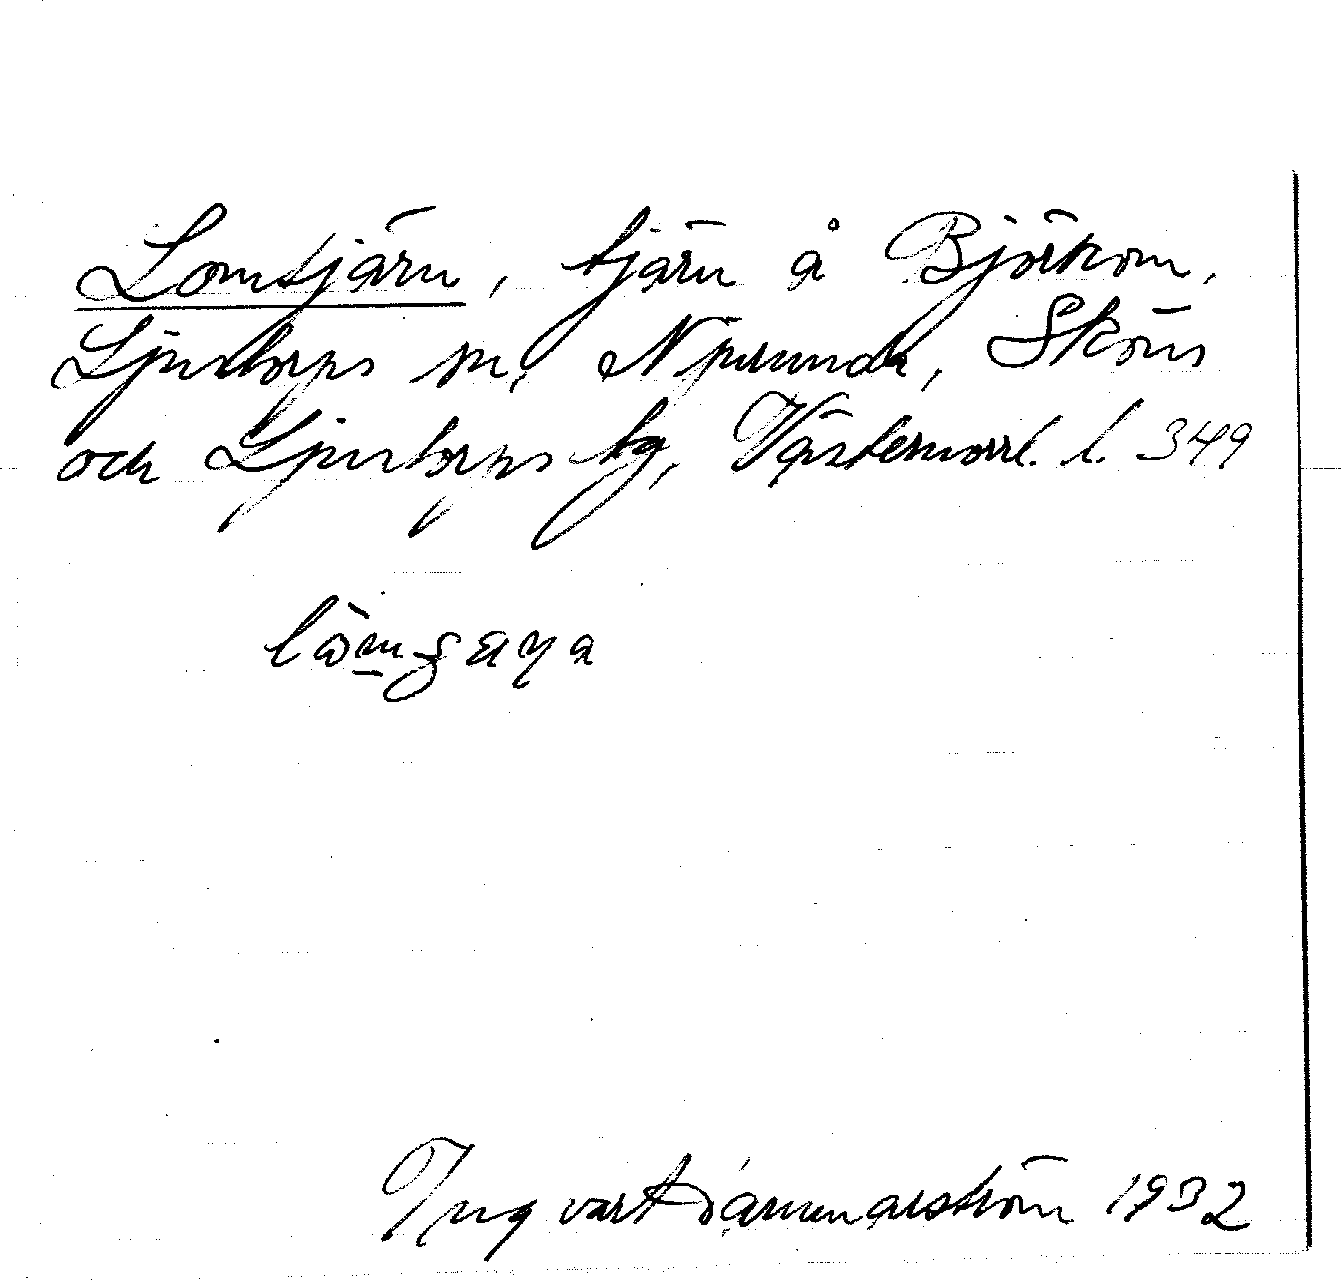 Lomtjärn, tjärn å Björkom,
Ljustorps sn, Njurunda, Sköns
och Ljustorps tg, Västernorrl. l. 349
Ingvart Hammarström 1932